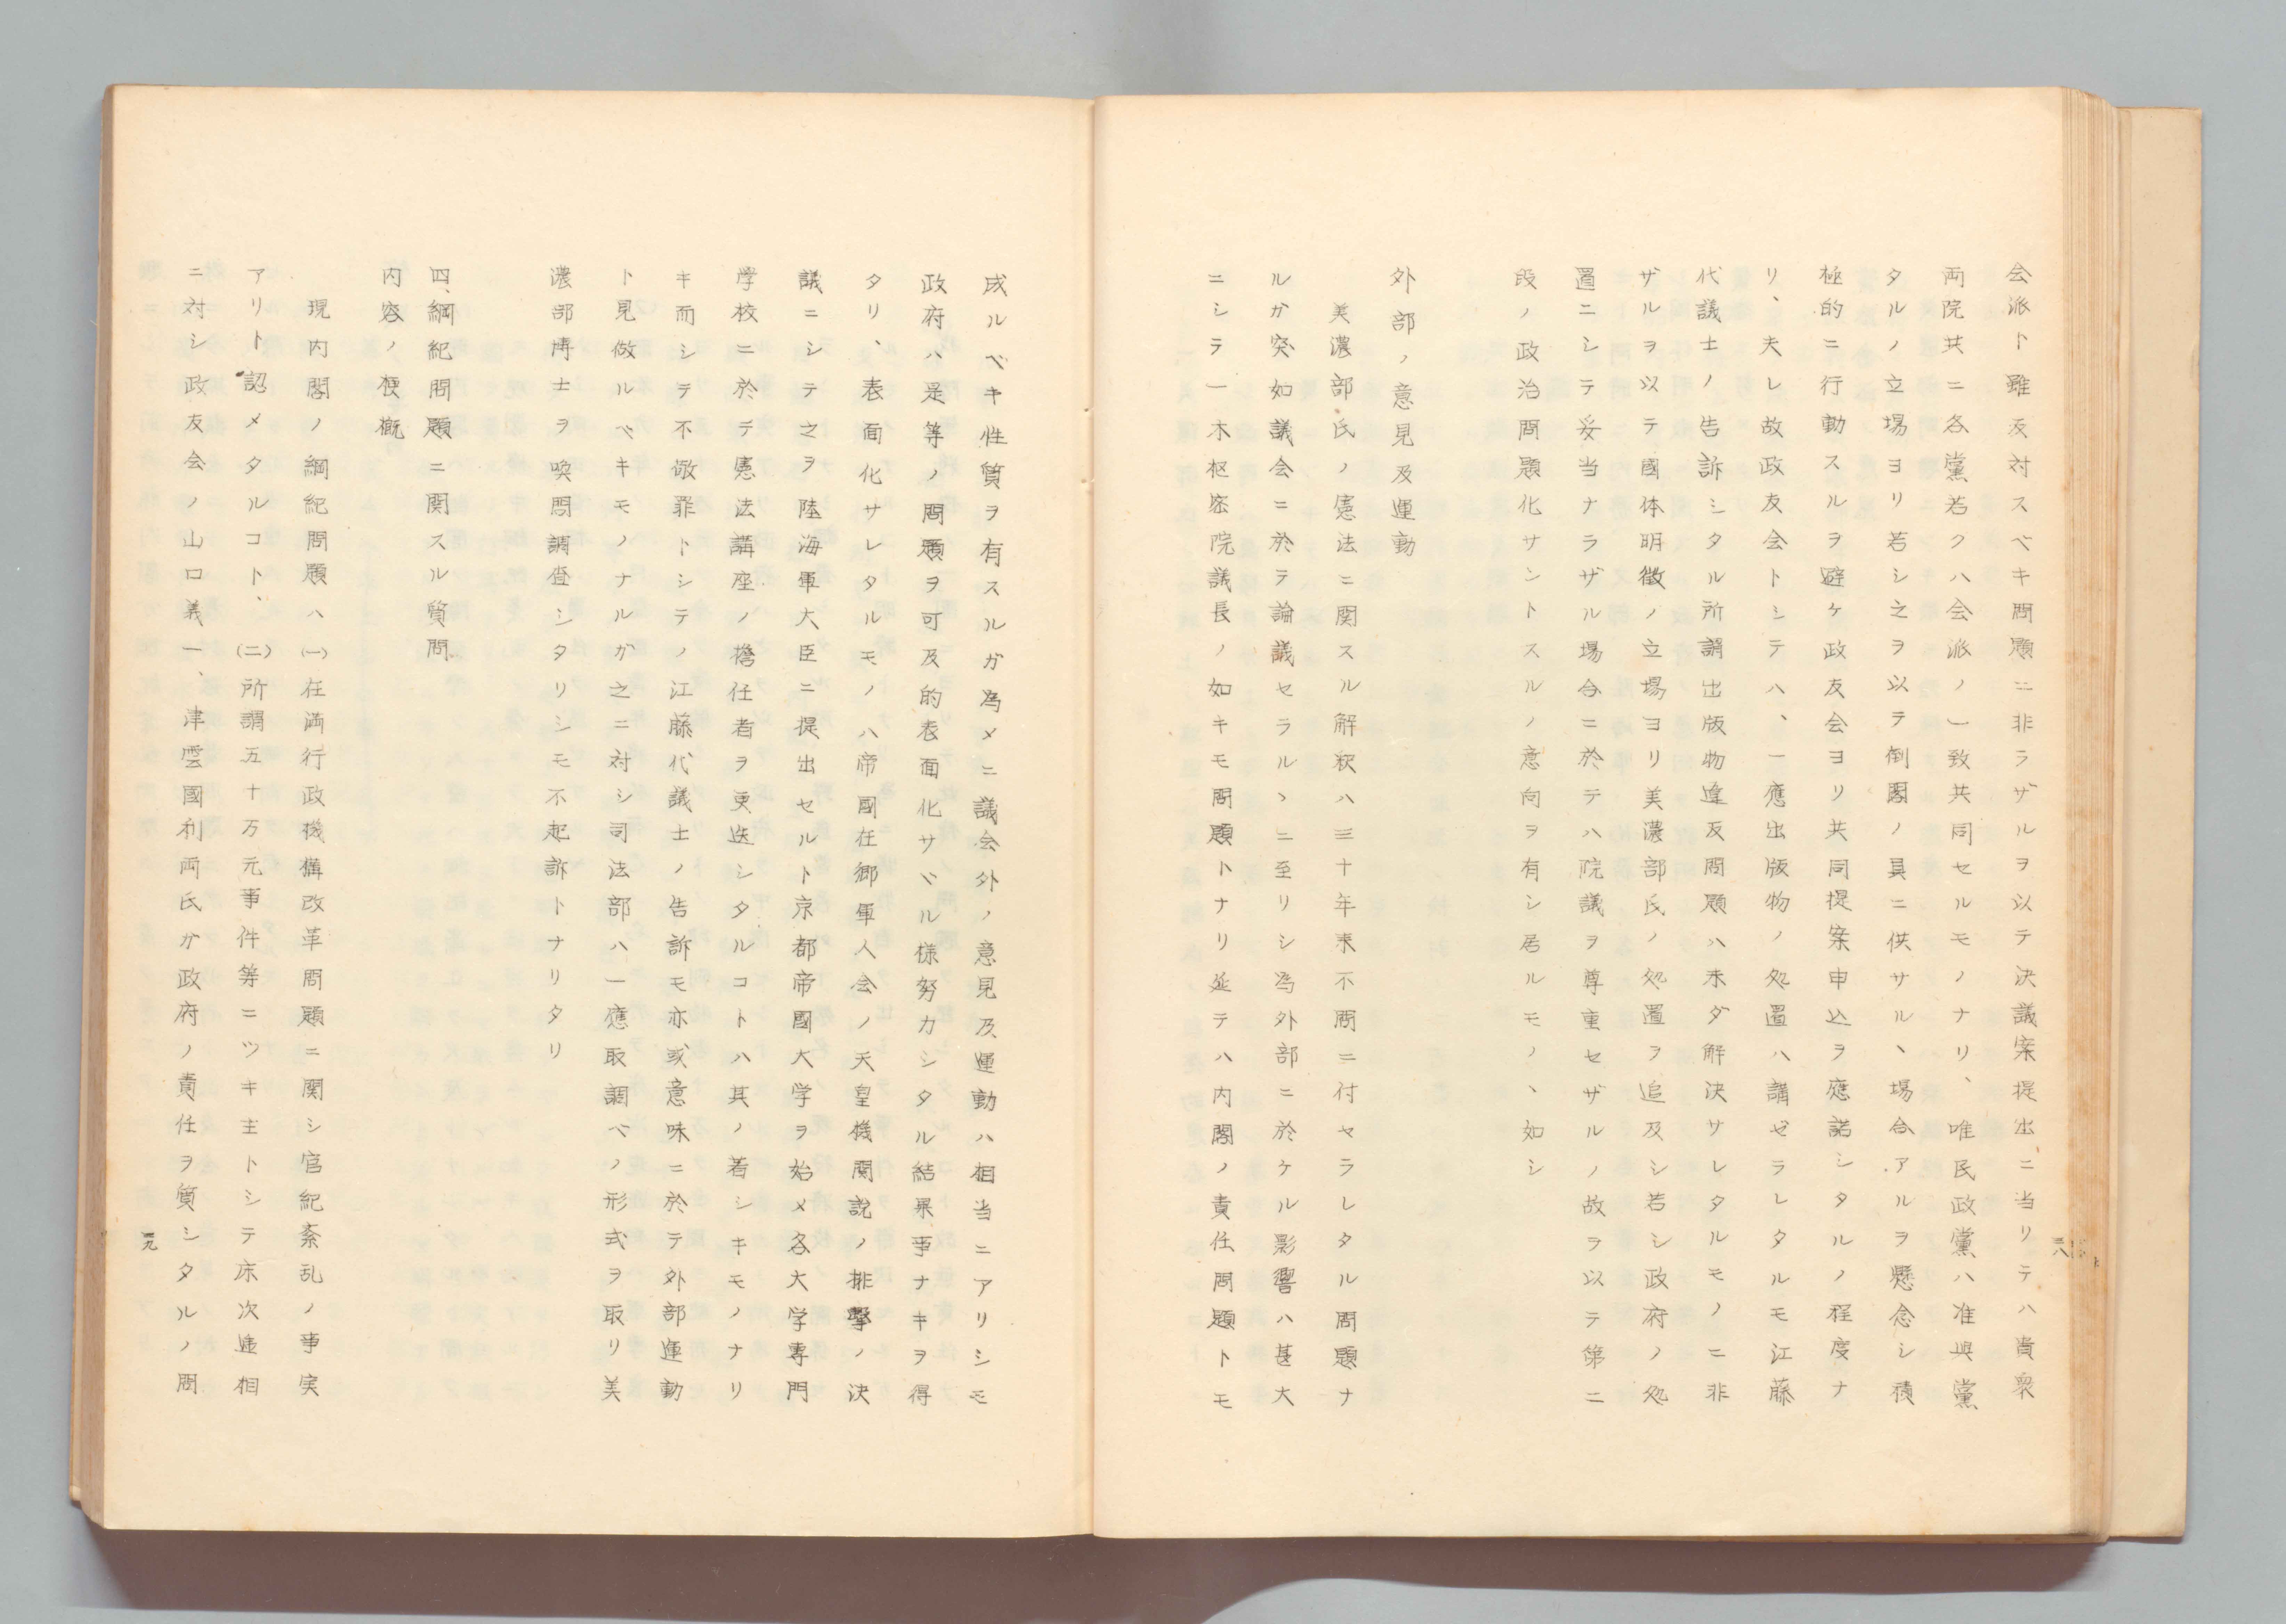 会派ト雖反対スベキ問題ニ非ラザルヲ以テ決議案提出ニ当リテハ貴衆
両院共ニ各黨若クハ会派ノ一致共同セルモノナリ、唯民政黨ハ准與黨
タルノ立場ヨリ若シ之ヲ以テ倒閣ノ具ニ供サルヽ場合アルヲ懸念シ積
極的ニ行動スルヲ避ケ政友会ヨリ共同提案申込ヲ應諾シタルノ程度ナ
リ、夫レ故政友会トシテハ、一應出版物ノ処置ハ講ゼラレタルモ江藤
代議士ノ告訴シタル所謂出版物違反問題ハ未ダ解決サレタルモノニ非
ザルヲ以テ國体明徴ノ立場ヨリ美濃部氏ノ処置ヲ追及シ若シ政府ノ処
置ニシテ妥当ナラザル場合ニ於テハ院議ヲ尊重セザルノ故ヲ以テ第二
段ノ政治問題化サントスルノ意向ヲ有シ居ルモノヽ如シ
外部ノ意見及運動
美濃部氏ノ憲法ニ関スル解釈ハ三十年来不問ニ付セラレタル問題ナ
ルガ突如議会ニ於テ論議セラルヽニ至リシ為外部ニ於ケル影響ハ甚大
ニシテ一木枢密院議長ノ如キモ問題トナリ延テハ内閣ノ責任問題トモ
三八
成ルベキ性質ヲ有スルガ為メニ議会外ノ意見及運動ハ相当ニアリシモ
政府ハ是等ノ問題ヲ可及的表面化サベル様努力シタル結果事ナキヲ得
タリ、表面化サレタルモノハ帝國在郷軍人会ノ天皇機関説ノ排撃ノ決
議ニシテ之ヲ陸海軍大臣ニ提出セルト京都帝國大学ヲ始メ各大学専門
学校ニ於デ憲法講座ノ擔任者ヲ更迭シタルコトハ其ノ著シキモノナリ
キ而シテ不敬罪トシテノ江藤代議士ノ告訴モ亦或意味ニ於テ外部運動
ト見做ルベキモノナルガ之ニ対シ司法部ハ一應取調ベノ形式ヲ取リ美
濃部博士ヲ喚問調査シタリシモ不起訴トナリタリ
四、綱紀問題ニ関スル質問
内容ノ梗概
現内閣ノ綱紀問題ハ(一)在満行政機構改革問題ニ関シ官紀紊乱ノ事実
アリト認メタルコト、(二)所謂五十万元事件等ニツキ主トシテ床次逓相
ニ対シ政友会ノ山口義一、津雲國利両氏ガ政府ノ責任ヲ質シタルノ問
三九